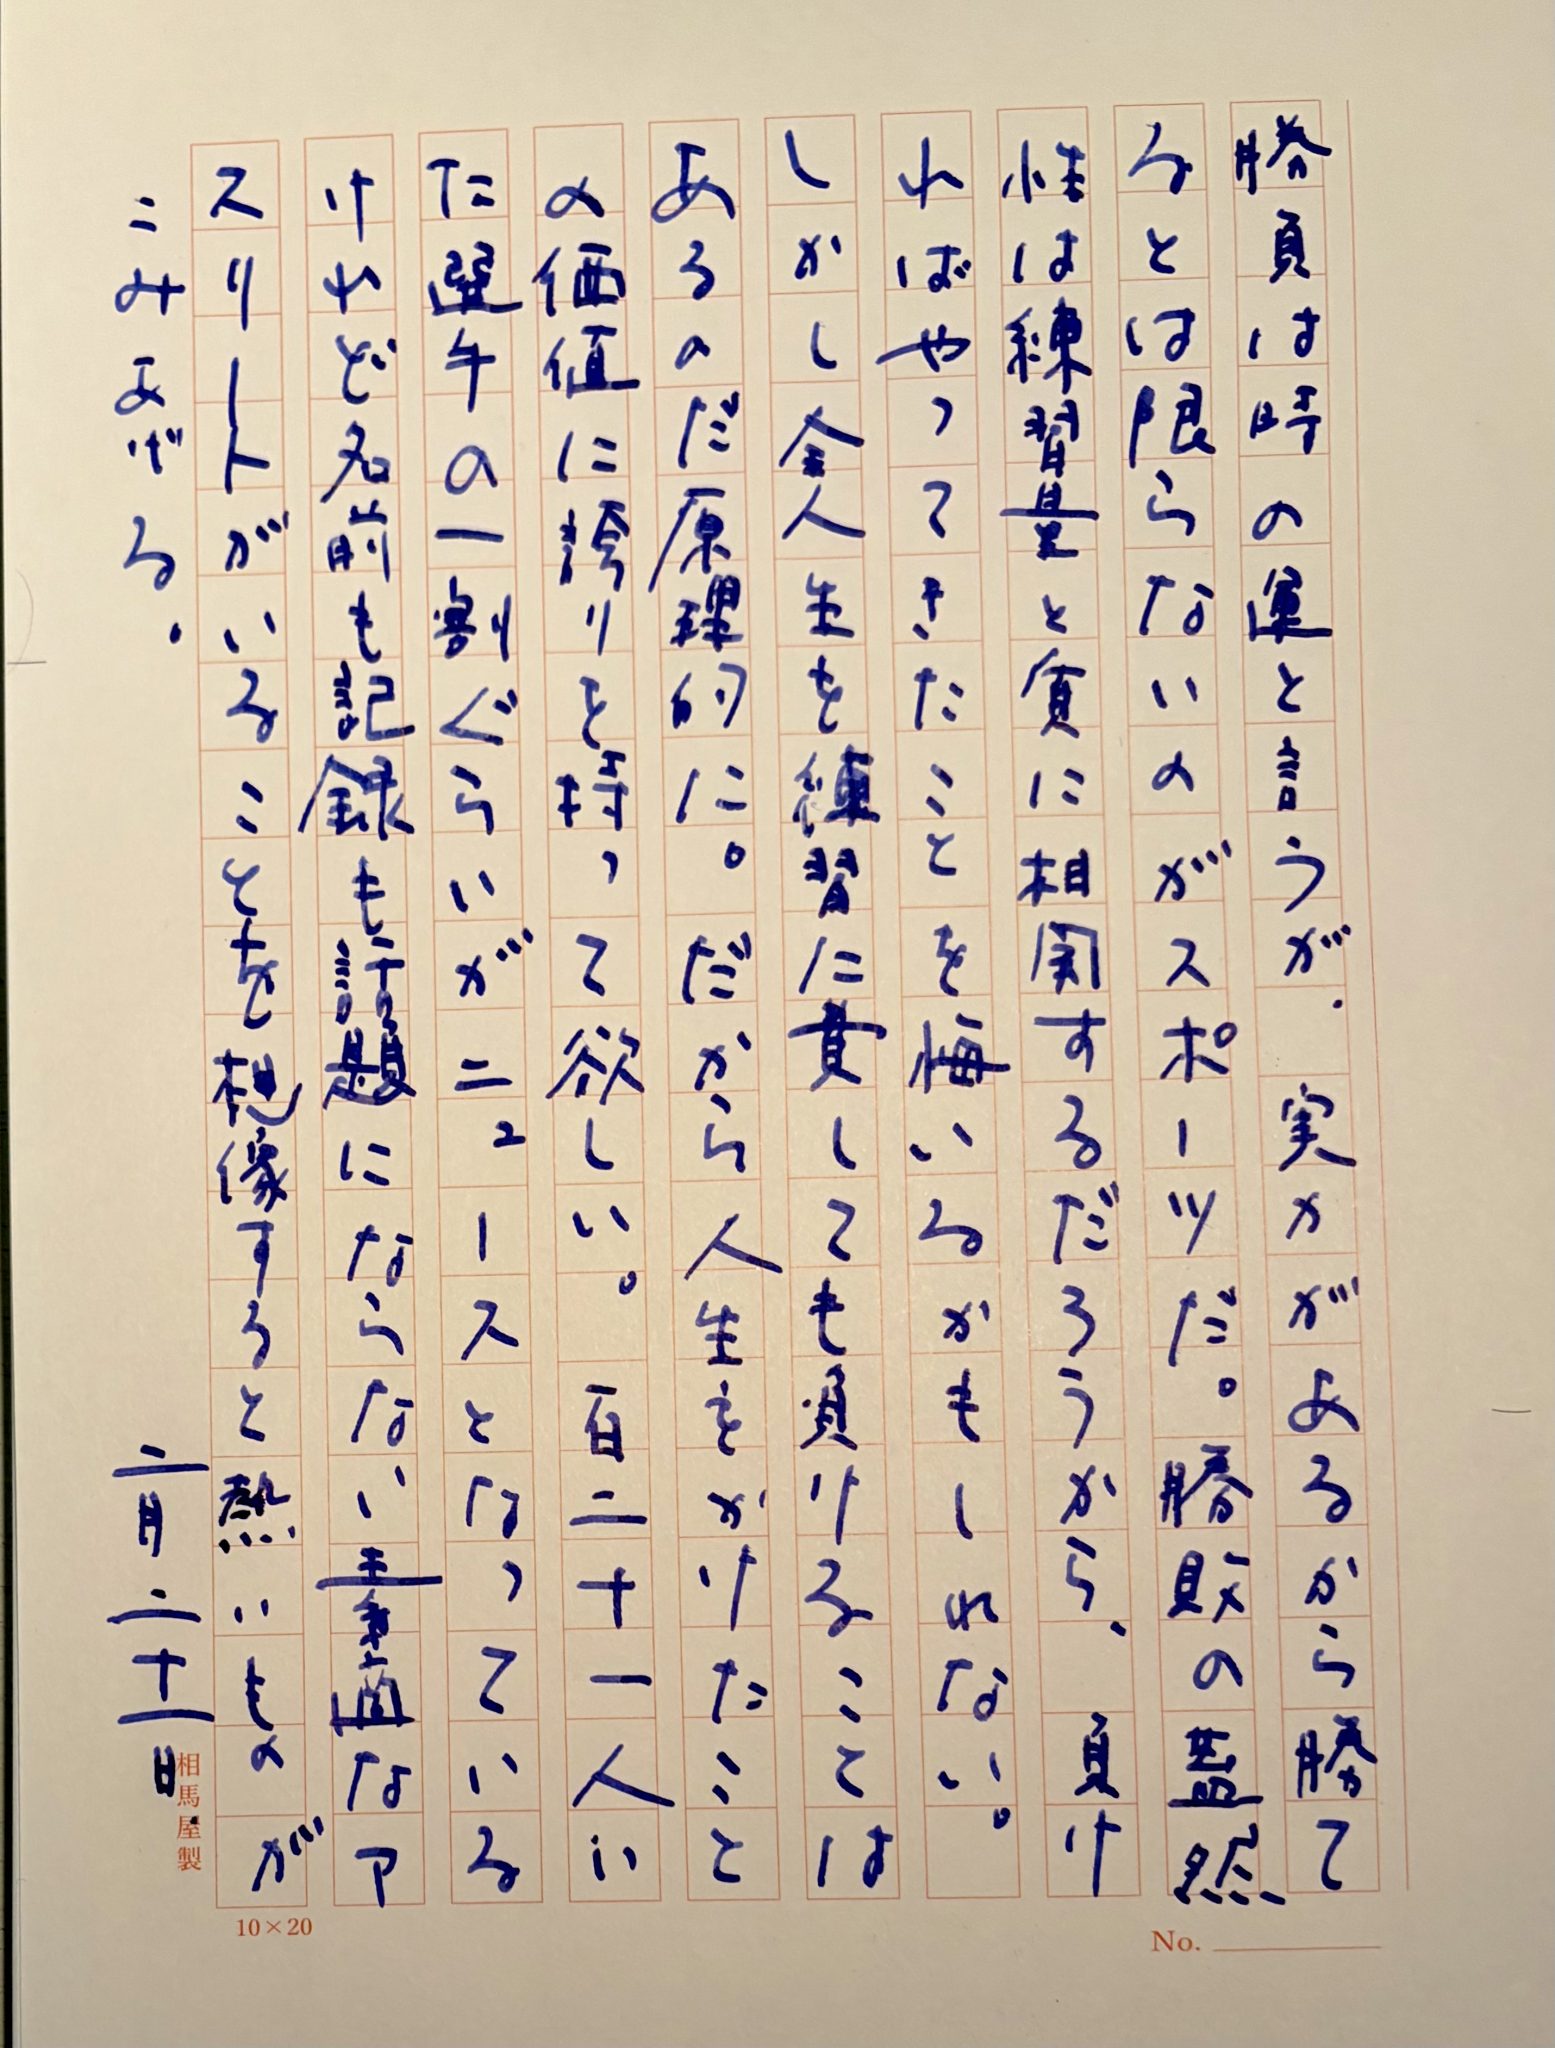 勝負は時の運と言うが、実力があるから勝て
るとは限らないのがスポーツだ。勝敗の蓋然
性は練習量と質に相関するだろうから、負け
ればやってきたことを悔いるかもしれない。
しかし全人生を練習に賭しても負けることは
あるのだ原理的に。だから人生をかけたこと
の価値に誇りを持って欲しい。百二十一人い
た選手の一割ぐらいがニュースとなっている
けれど名前も記録も話題にならない素適なア
スリートがいることを想像すると熱いものが
こみあげる。
二月二十一日
相馬屋製
10×20
No.